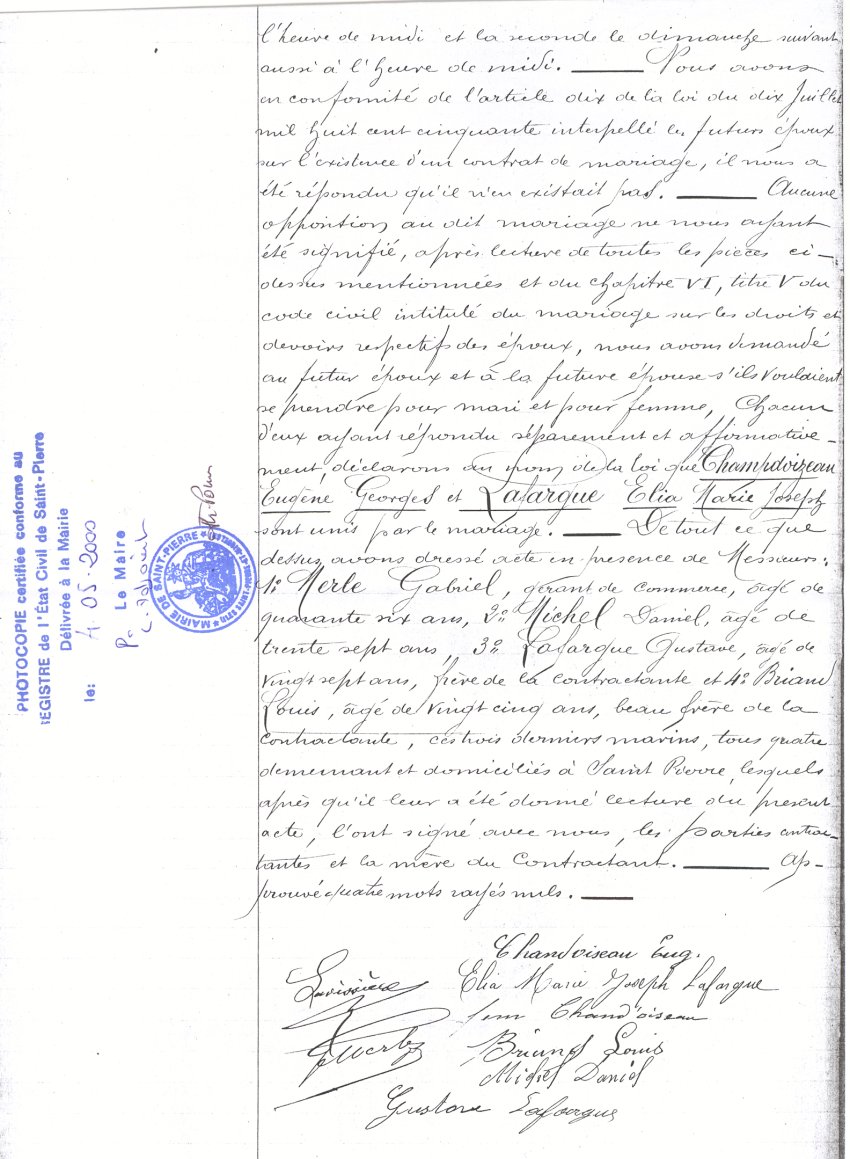 l'heure de midi et la seconde le dimanche suivant
aussi à l'heure de midi. ——— Nous avons
en conformité de l'article dix de la loi du dix Juillet
mil huit cent cinquante interpellé les futurs époux
sur l'existence d'un contrat de mariage, il nous a
été répondu qu'il n'en existait pas. ——— Aucune
opposition au dit mariage ne nous ayant
été signifié, après lecture de toutes les pièces ci-
dessus mentionnées et du chapitre VI, titre V du
code civil intitulé du mariage sur les droits et
devoirs respectifs des époux, nous avons demandé
au futur époux et à la future épouse s'ils voulaient
se prendre pour mari et pour femme, chacun
d'eux ayant répondu séparement et affirmative-
ment, déclarons au nom de la loi que Champdoizeau
Eugène Georges et Lafargue Elia Marie Joseph
sont unis par le mariage. ——— De tout ce que
dessus avons dressé acte en présence de Messieurs:
1º Merle Gabriel, gérant de commerce, âgé de
quarante six ans, 2º Michel Daniel, âgé de
trente sept ans, 3º Lafargue Gustave, âgé de
vingt sept ans, frère de la contractante et 4º Briand
Louis, âgé de vingt cinq ans, beau frère de la
contractante, ces trois derniers marins, tous quatre
demeurant et domiciliés à Saint Pierre, lesquels
après qu'il leur a été donné lecture du présent
acte, l'ont signé avec nous, les parties contrac-
tantes et la mère du contractant. ——— Ap-
prouvé quatre mots rayés nuls. ———
Chandoiseau Eug.
Elia Marie Joseph Lafargue
fem Chand'oiseau
Briand Louis
Michel Daniel
Gustave Lafargue
PHOTOCOPIE certifiée conforme au
REGISTRE de l'État Civil de Saint-Pierre
Délivrée à la Mairie
le: 4.05.2000
Le Maire
MAIRIE DE SAINT-PIERRE